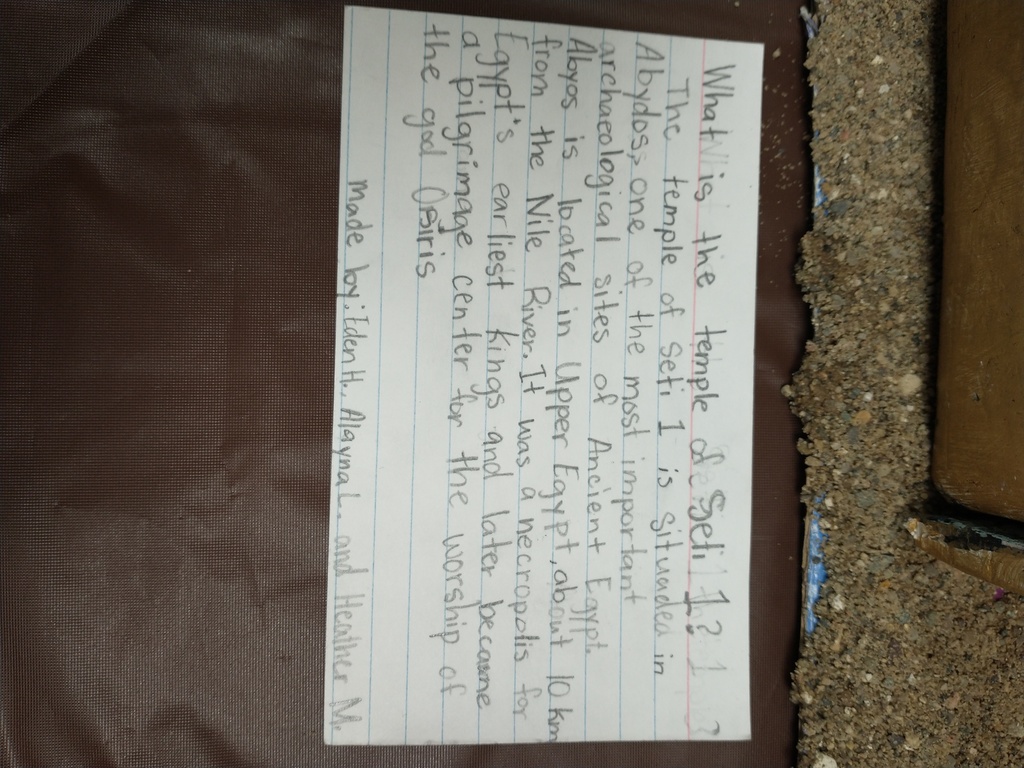 What is the temple of Seti 1?
The temple of Seti 1 is situaded in
Abydos, one of the most important
archaeological sites of Ancient Egypt.
Abyos is located in Upper Egypt, about 10 km
from the Nile River. It was a necropolis for
Egypt's earliest kings and later became
a pilgrimage center for the worship of
the god Osiris
made by: Iden H., Alayna L. and Heather M.